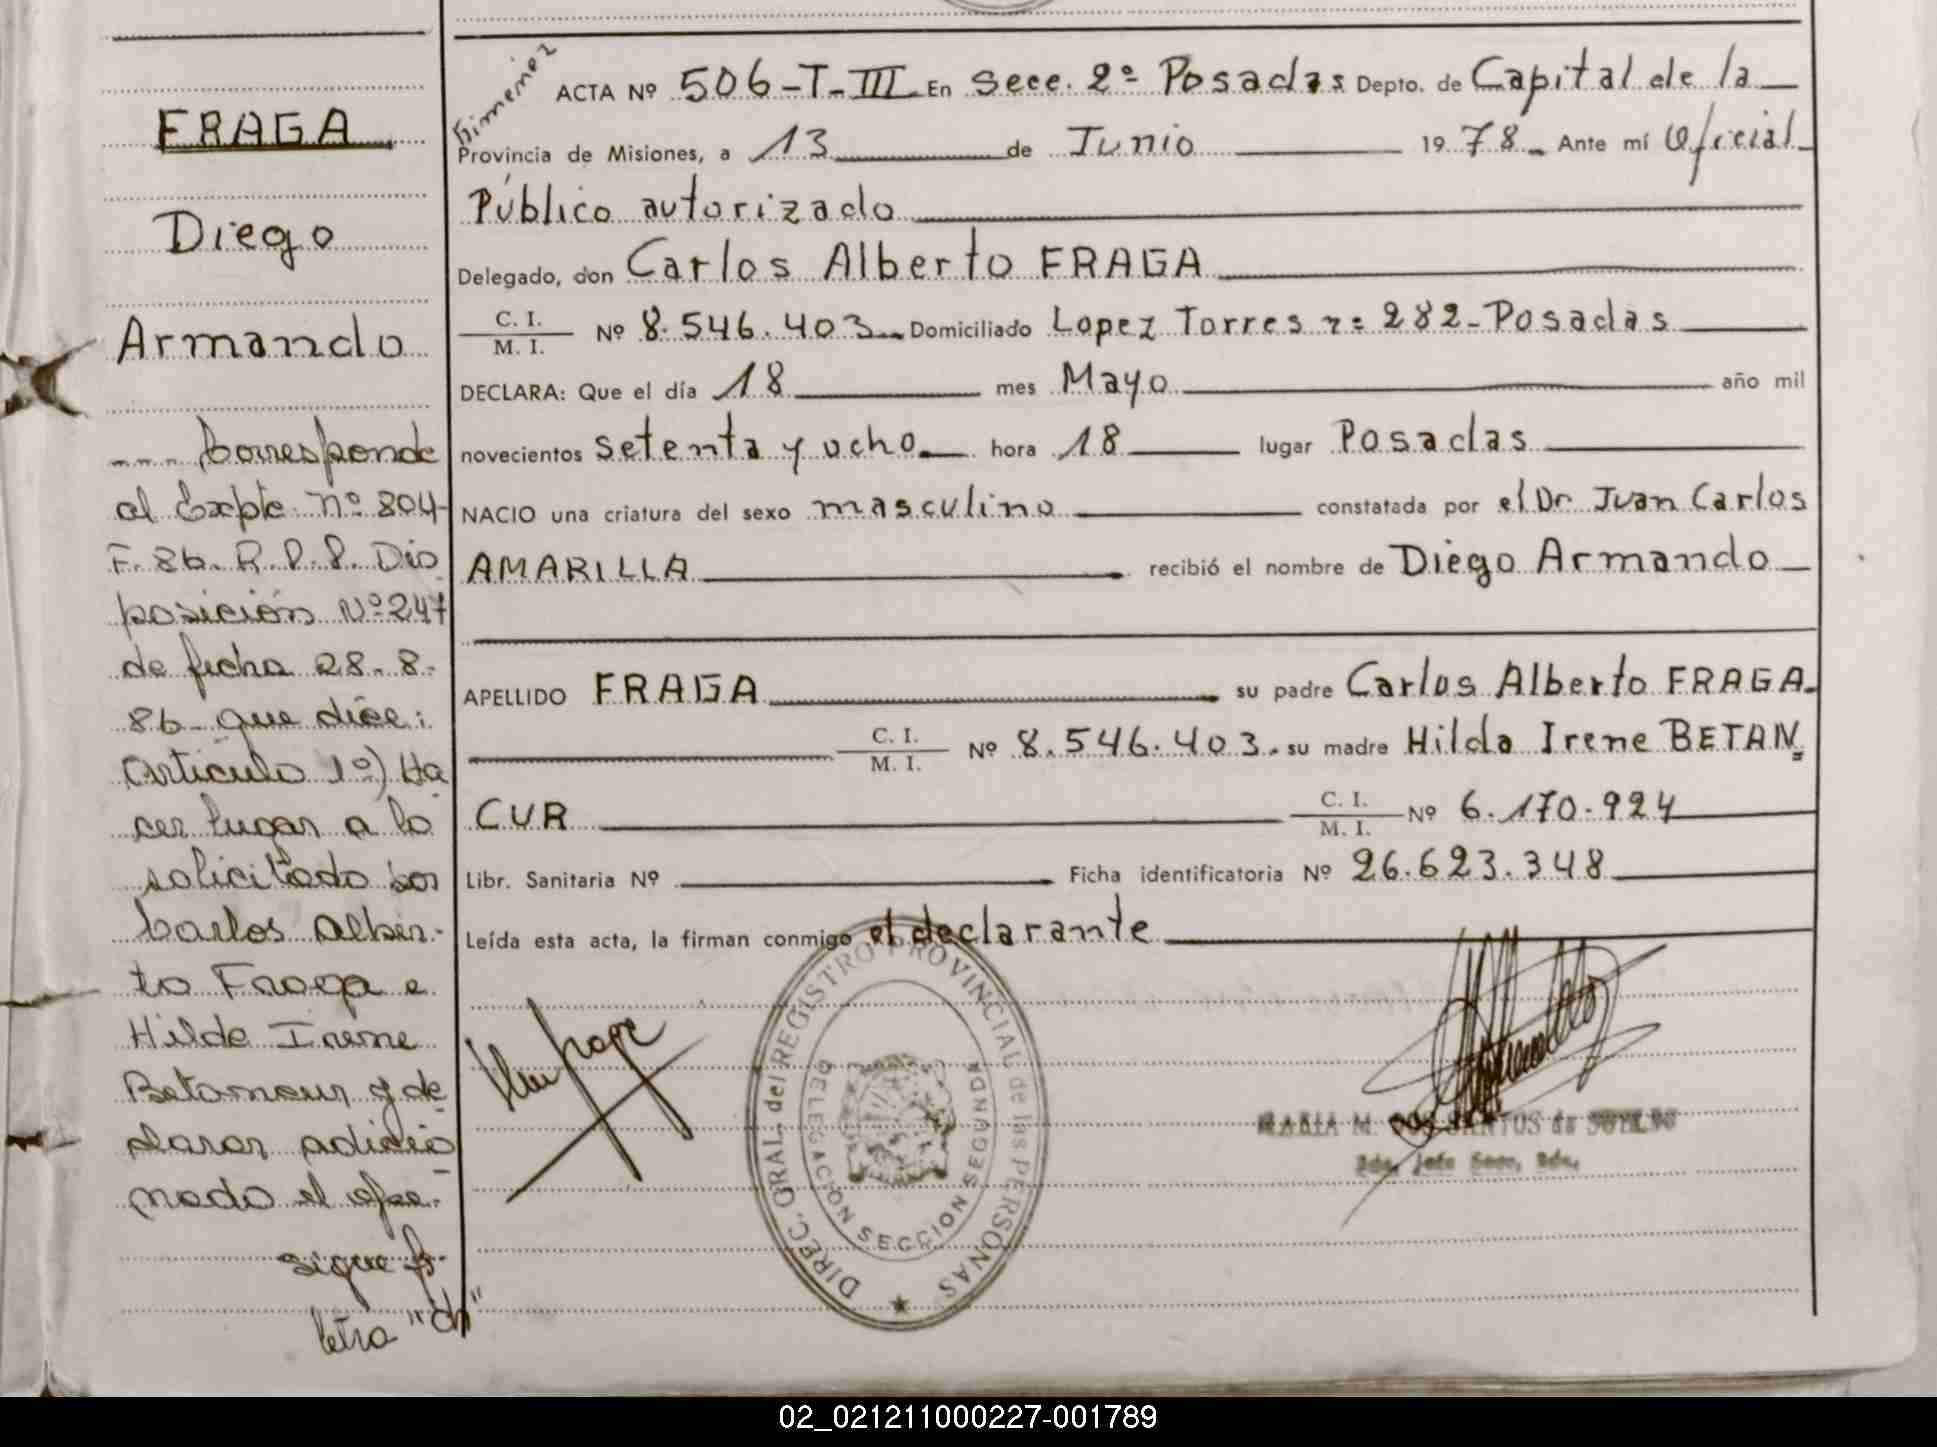 FRAGA
Diego
Armando
--- Corresponde
al Expte. Nº 804-
F. 86. R.P.P. Dis
posición Nº 247
de fecha 28-8-
86 que dice:
Artículo 1º) Ha
cer lugar a lo
solicitado por
Carlos Alber-
to Fraga e
Hilda Irene
Betancur y de
clarar adicio
nado el ape-
sigue fº
letra "ch"
ACTA Nº 506-T-III En Secc. 2º Posadas Depto. de Capital de la
Provincia de Misiones, a 13 de Junio 1978 Ante mí Oficial
Público autorizado
Delegado, don Carlos Alberto FRAGA
C. I. / M. I. Nº 8.546.403 Domiciliado Lopez Torres nº 282-Posadas
DECLARA: Que el día 18 mes Mayo año mil
novecientos setenta y ocho hora 18 lugar Posadas
NACIO una criatura del sexo masculino constatada por el Dr. Juan Carlos
AMARILLA recibió el nombre de Diego Armando
APELLIDO FRAGA su padre Carlos Alberto FRAGA.
C. I. / M. I. Nº 8.546.403. su madre Hilda Irene BETAN=
CUR C. I. / M. I. Nº 6.170.924
Libr. Sanitaria Nº Ficha identificatoria Nº 26.623.348
Leída esta acta, la firman conmigo el declarante
DIREC. GRAL. del REGISTRO PROVINCIAL de las PERSONAS
DELEGACION SECCION SEGUNDA
MARIA M. DOS SANTOS de
02_021211000227-001789